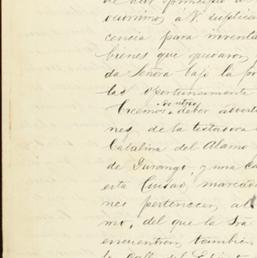 de dar principio á
ocurrimos, á V. suplica
cencia para inventa
bienes que quedaron
da Señora bajo la pro
las oportunamente
nosotros
Creemos deber adverti
nes, de la testadora
Catalina del Alamo
de Durango, y una ca
esta Ciudad, marcada
nos pertenecen, al
mo, del que la Sra
encuentran, también